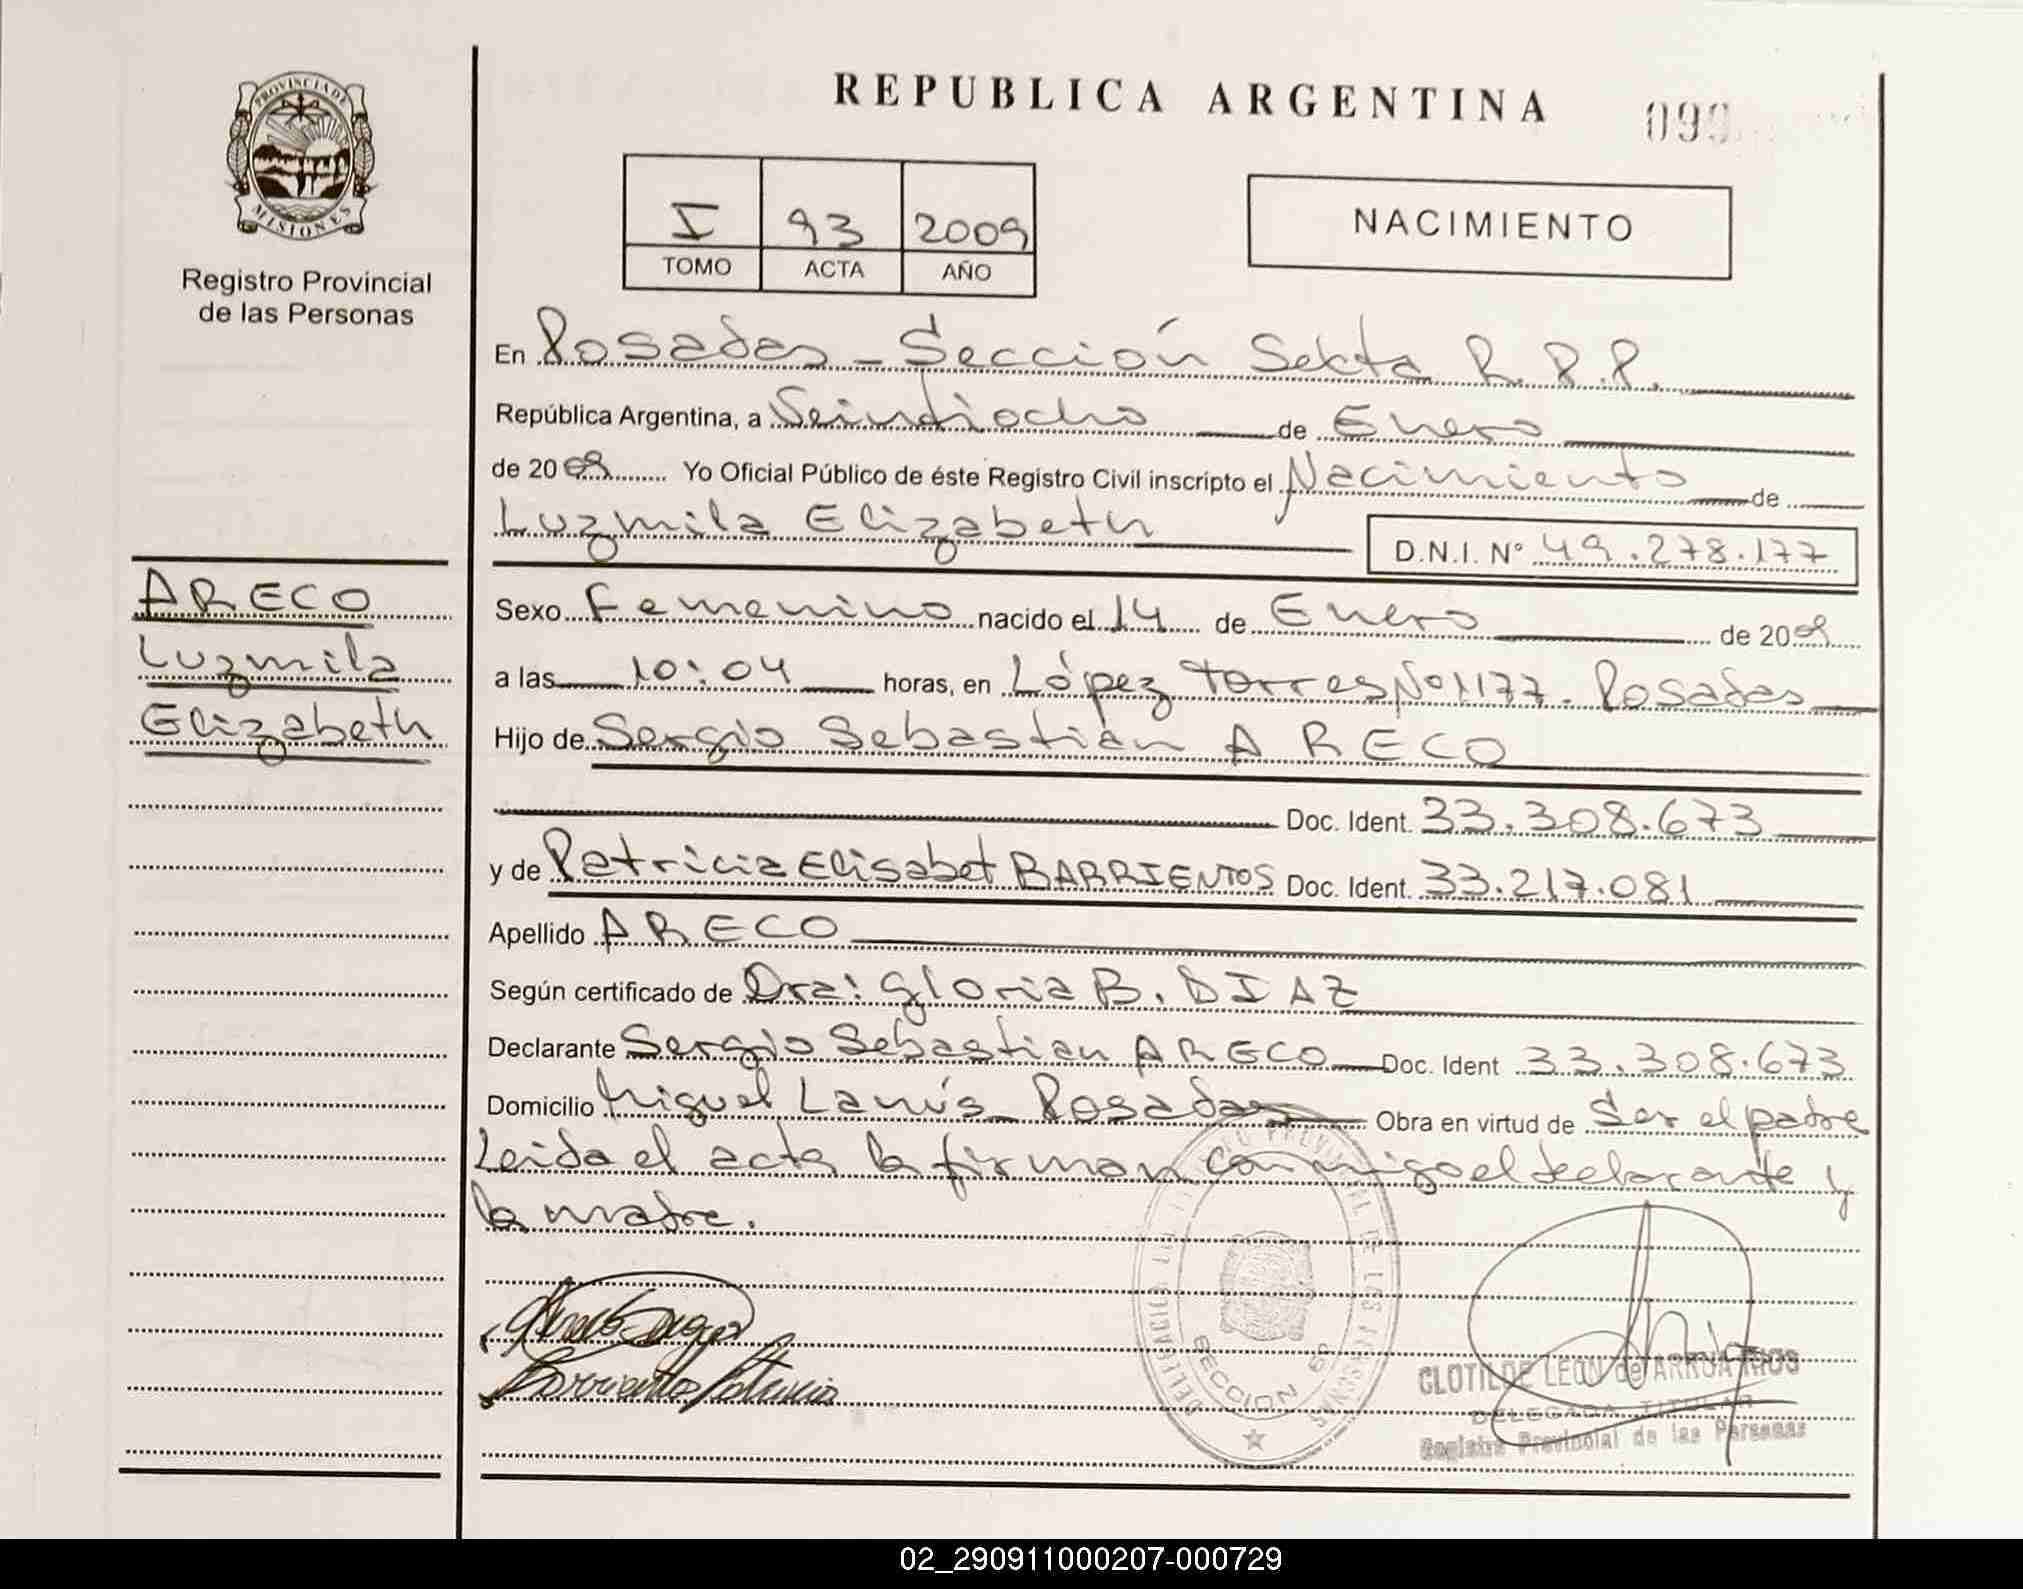 PROVINCIA DE
MISIONES
Registro Provincial
de las Personas
ARECO
Luzmila
Elizabeth
REPUBLICA ARGENTINA
099
I 93 2009
TOMO ACTA AÑO
NACIMIENTO
En Posadas - Sección Sexta R.P.P.
República Argentina, a Veintiocho de Enero
de 2009 Yo Oficial Público de éste Registro Civil inscripto el Nacimiento de
Luzmila Elizabeth D.N.I. N° 49.278.177
Sexo Femenino nacido el 14 de Enero de 2009
a las 10:04 horas, en López Torres Nº 1177 - Posadas
Hijo de Sergio Sebastián ARECO
Doc. Ident. 33.308.673
y de Patricia Elisabet BARRIENTOS Doc. Ident. 33.217.081
Apellido ARECO
Según certificado de Dra: Gloria B. DIAZ
Declarante Sergio Sebastian ARECO Doc. Ident 33.308.673
Domicilio Miguel Lanús - Posadas Obra en virtud de Ser el padre
Leida el acta la firman conmigo el declarante y
la madre.
Barrientos Patricia
DELEGACION DEL REGISTRO PROVINCIAL DE LAS PERSONAS
SECCION 6ª
CLOTILDE LEON de ARRUA RIOS
DELEGADA TITULAR
Registro Provincial de las Personas
02_290911000207-000729